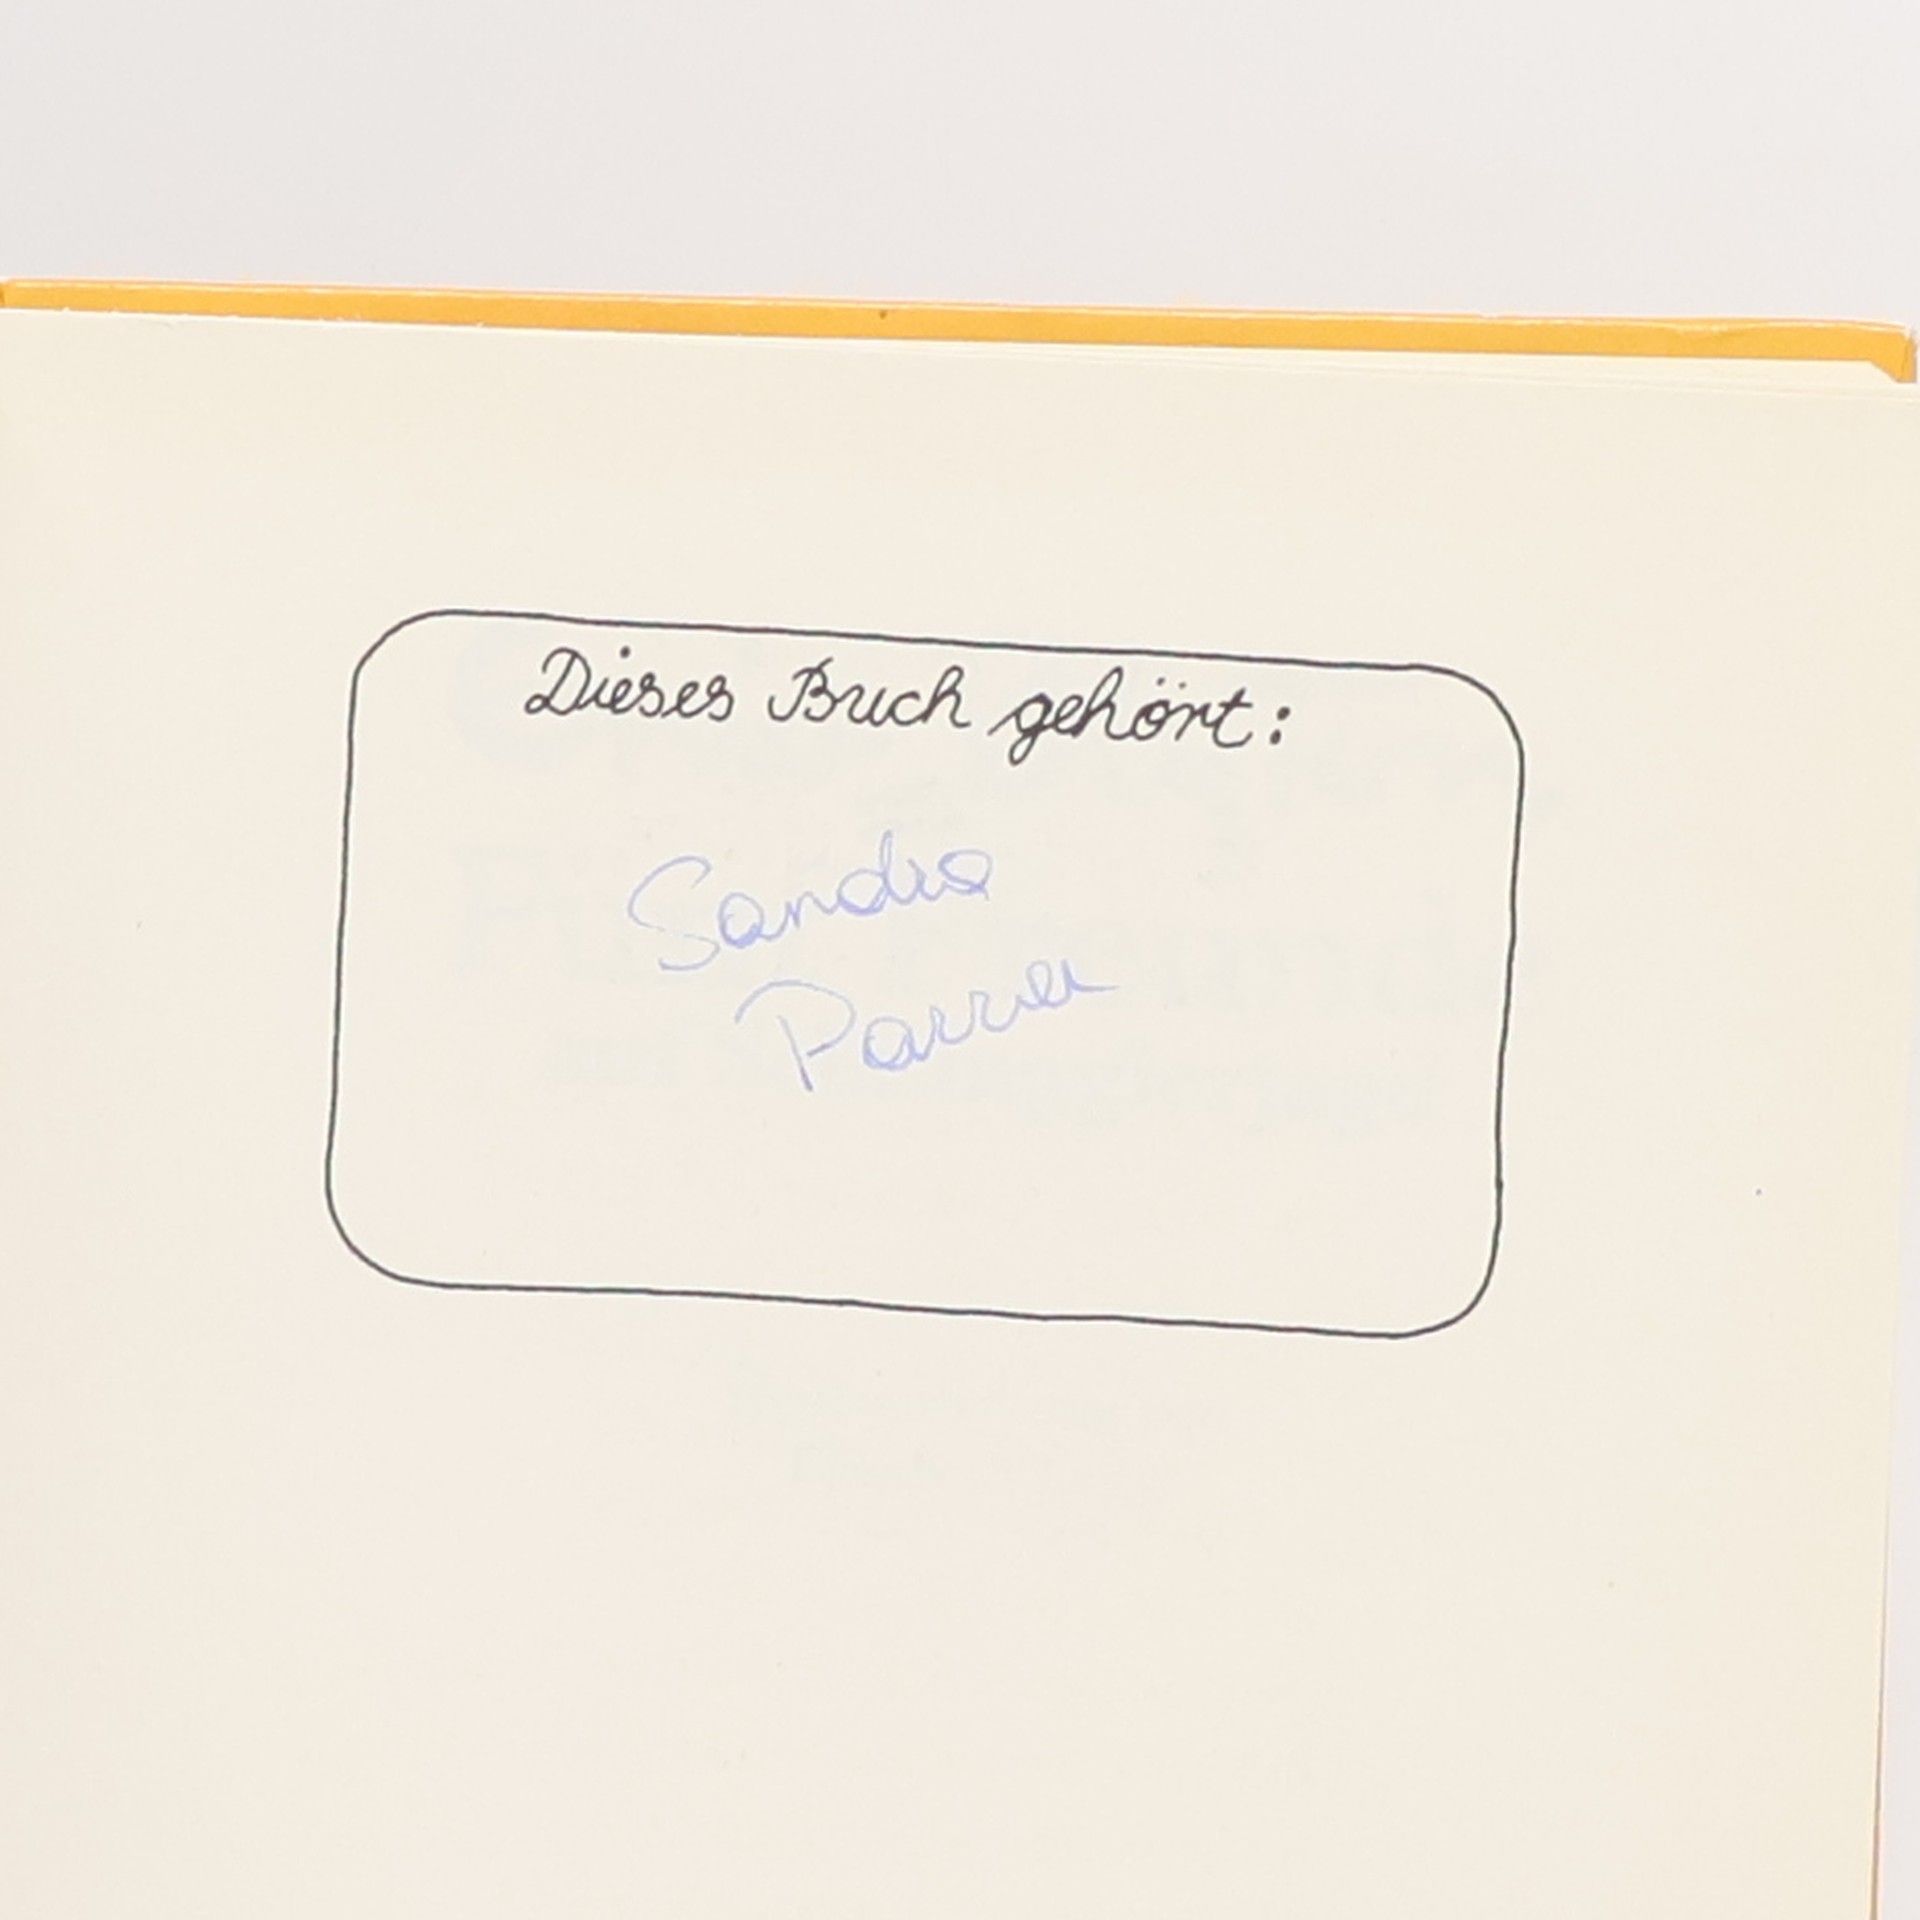 Dieses Buch gehört:
Sandra